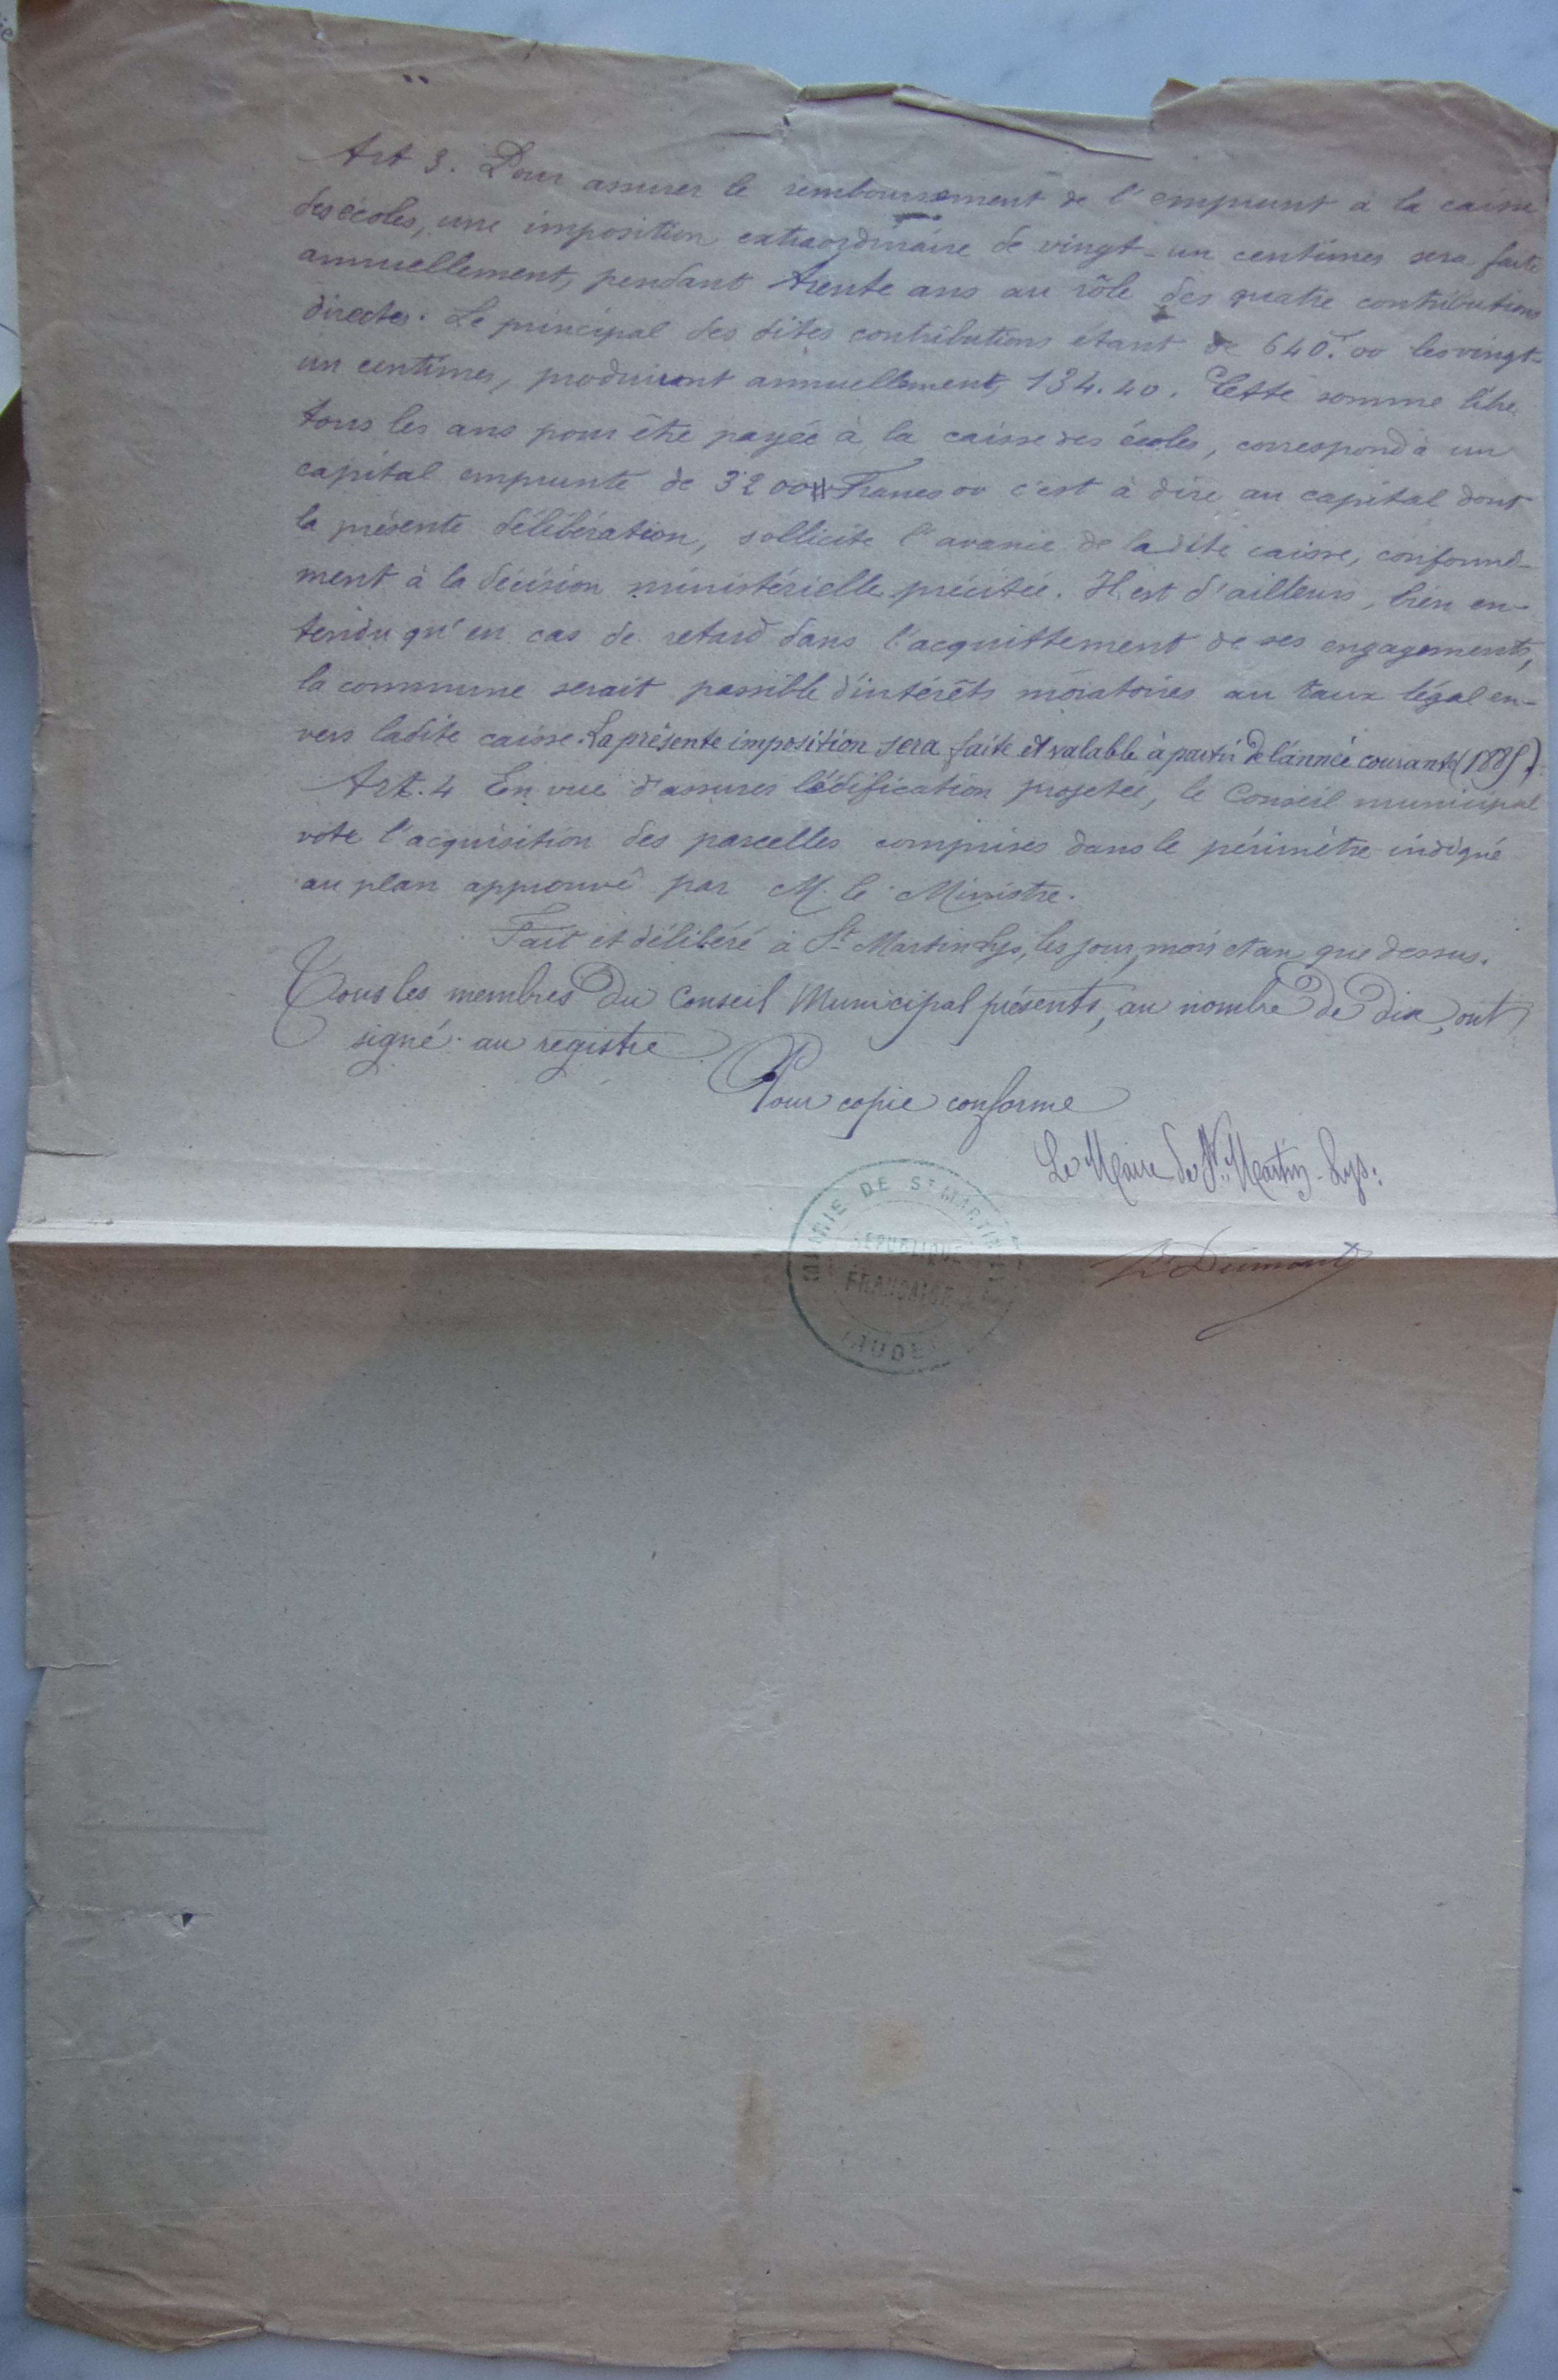 Art 3. Pour assurer le remboursement de l'emprunt à la caisse
des écoles, une imposition extraordinaire de vingt-un centimes sera faite
annuellement, pendant trente ans au rôle des quatre contributions
directes. Le principal des dites contributions étant de 640.f 00 les vingt-
un centimes, produiront annuellement, 134.40. Cette somme
tous les ans pour être payée à la caisse des écoles, correspond à un
capital emprunté de 3200 Francs 00 c'est à dire au capital dont
la présente délibération, sollicite l'avance de ladite caisse, conformé-
ment à la décision ministérielle précitée. Il est d'ailleurs, bien en-
tendu qu'en cas de retard dans l'acquittement de ses engagements,
la commune serait passible d'intérêts moratoires au taux légal en-
vers ladite caisse. La présente imposition sera faite et valable à partir de l'année courante (1885)
Art. 4 En vue d'assurer l'édification projetée, le Conseil municipal
vote l'acquisition des parcelles comprises dans le périmètre indiqué
au plan approuvé par M. le Ministre.
Fait et délibéré à St Martin Lys, les jour, mois et an que dessus.
Tous les membres du Conseil Municipal présents, au nombre de dix, ont
signé au registre
Pour copie conforme
Le Maire de St Martin-Lys.
MAIRIE DE ST MARTIN
RÉPUBLIQUE
FRANÇAISE
(AUDE)
Dumont